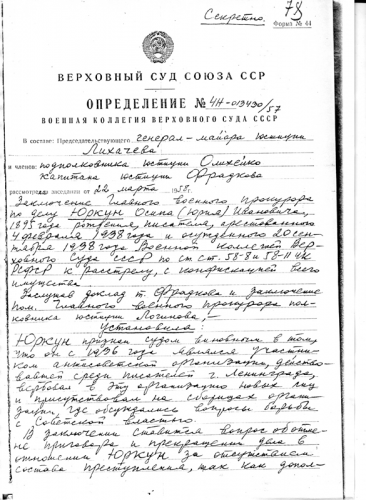 Секретно.
78
Форма № 44
ВЕРХОВНЫЙ СУД СОЮЗА ССР
ОПРЕДЕЛЕНИЕ № 4Н-013430/57
ВОЕННАЯ КОЛЛЕГИЯ ВЕРХОВНОГО СУДА СССР
В составе: Председательствующего генерал-майора юстиции
Лихачева
и членов: подполковника юстиции
капитана юстиции
рассмотрев в заседании от 22 марта 1958 г.
Заключение Главного военного прокурора
по делу Юркун Осипа (Юрия) Ивановича,
1895 года рождения, писателя, арестованного
4 февраля 1938 года и осужденного 20 сен-
тября 1938 года Военной коллегией Вер-
ховного Суда СССР по ст. ст. 58-8 и 58-11 УК
РСФСР к расстрелу, с конфискацией всего
имущества.
Заслушав доклад т. и заключение
пом. Главного военного прокурора пол-
ковника юстиции Логинова, –
Установила:
Юркун признан судом виновным в том,
что он с 1936 года являлся участни-
ком антисоветской организации, действо-
вавшей среди писателей г. Ленинграда,
вербовал в эту организацию новых лиц
и присутствовал на сборищах орган-
зации, где обсуждались вопросы борьбы
с Советской властью.
В заключении ставится вопрос об отме-
не приговора и прекращении дела в
отношении Юркун за отсутствием
состава преступления, так как допол-